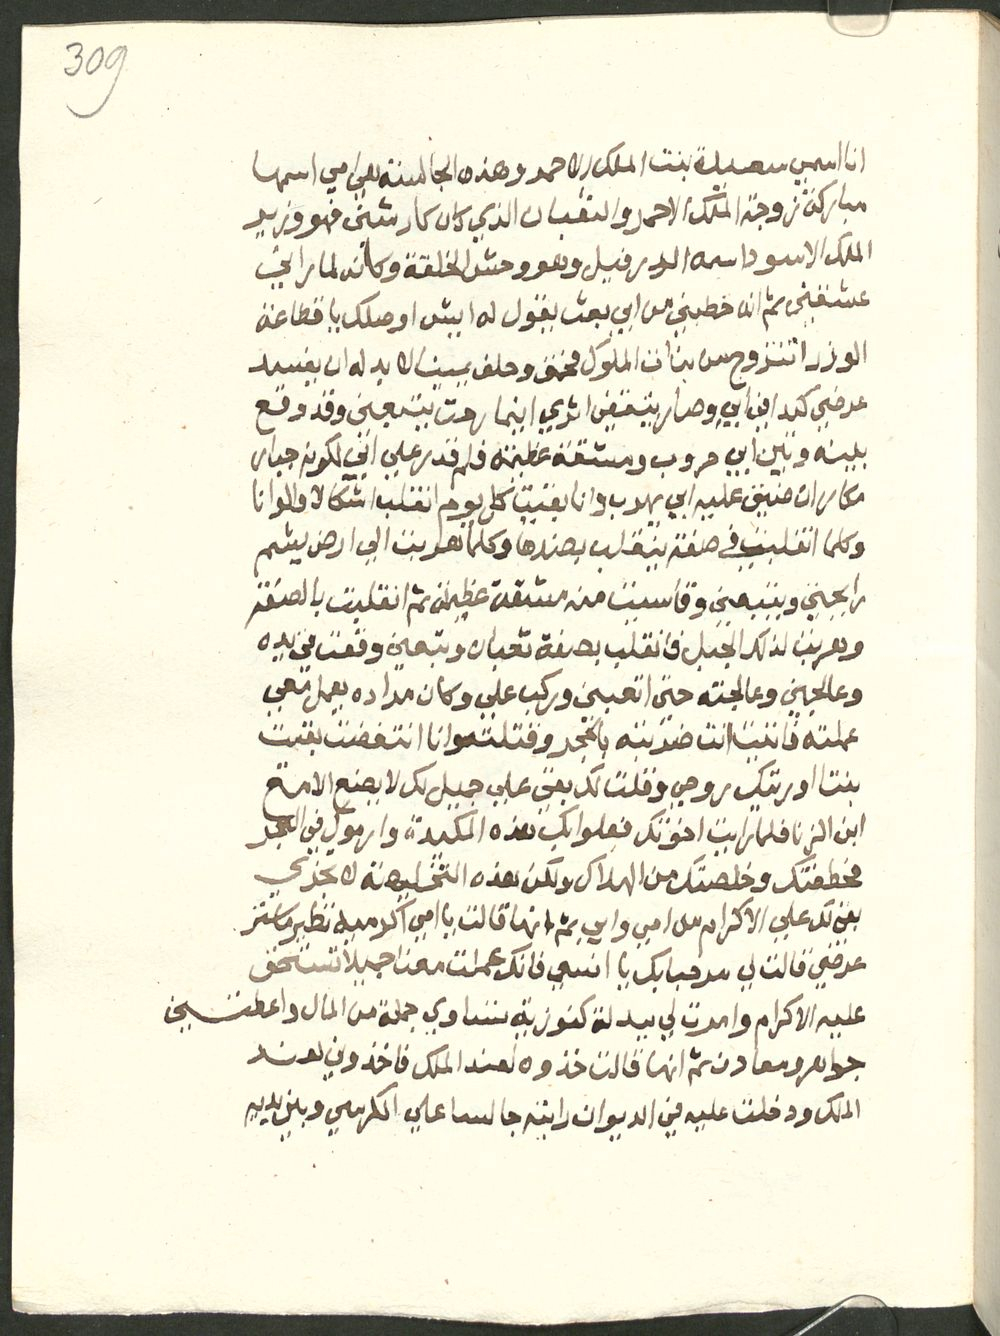 309
انا اسمي سعيدة بنت الملك الاحمر وهذه الجالسة هي امي اسمها
مباركة زوجة الملك الاحمر والتعبان الذي كان كارشني فهو وزير
الملك الاسود اسمه الدرفيل وهو وحش الخلقة وكأنه لما رايته
عشقني ثم انه خطبني من ابي بعث يقول له ايش اوصلك يا قطاعة
الوزرا تتزوج من بنات الملوك فحنق وحلف يمينا لا بد له ان يفسد
عرضي كيد في ابي وصار يتقفي اثري اينما رحت يتبعني وقد وقع
بينه وبين ابي حروب ومشقة عظيمة فلم قدر علي ابي لكونه جبار
مكار ان ضيق عليه ابي يهرب وانا بقيت كل يوم انقلب اشكالا والوانا
وكلما انقلبت في صفة ينقلب بضدها وكلما هربت الي ارض يشم
رايحتي ويتبعني وقاسيت منه مشقة عظيمة ثم انقلبت بالصفة
وهربت لذلك الجبل فانقلب بصفة تعبان وتبعني وقعت في يده
وعالجني وعالجته حتى اتعبني وركب علي وكان مراده يعمل معي
عملته فاتيت انت ضربته بالحجر وقتلته وانا انتفضت بقيت
بنتا اوريتك روحي وقلت لك بقى علي جميل لك لا يضيع الا مع
ابن الزنا فلما رايت اخوتك فعلوا بك هذه المكيدة وارموك في البحر
فخطفتك وخلصتك من الهلاك ولكن هذه التخليصة لا تجزي
بقى لك علي الاكرام من امي وابي ثم انها قالت يا امي اكرميه نظير ما ستر
عرضي قالت لي مرحبا بك يا انسي فانك عملت معنا جميلا تستحق
عليه الاكرام وامرت لي ببدلة كنوزية تساوي جملة من المال واعطتني
جواهر ومعادن ثم انها قالت خذوه لعند الملك فاخذوني لعند
الملك ودخلت عليه في الديوان رايته جالسا علي الكرسي وبين يديه